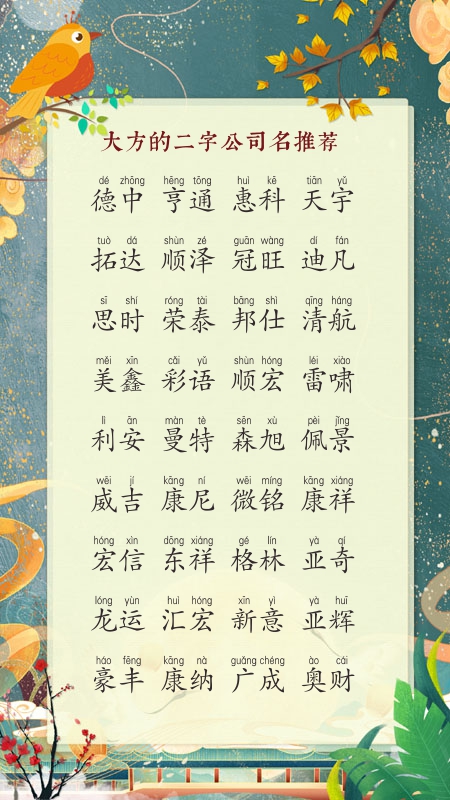 大方的二字公司名推荐
dé zhōng hēng tōng huì kē tiān yǔ
德中 亨通 惠科 天宇
tuò dá shùn zé guān wàng dí fán
拓达 顺泽 冠旺 迪凡
sī shí róng tài bāng shì qīng háng
思时 荣泰 邦仕 清航
měi xīn cǎi yǔ shùn hóng léi xiào
美鑫 彩语 顺宏 雷啸
lì ān màn tè sēn xù pèi jǐng
利安 曼特 森旭 佩景
wēi jí kāng ní wēi míng kāng xiáng
威吉 康尼 微铭 康祥
hóng xìn dōng xiáng gé lín yà qí
宏信 东祥 格林 亚奇
lóng yùn huì hóng xīn yì yà huī
龙运 汇宏 新意 亚辉
háo fēng kāng nà guǎng chéng ào cái
豪丰 康纳 广成 奥财